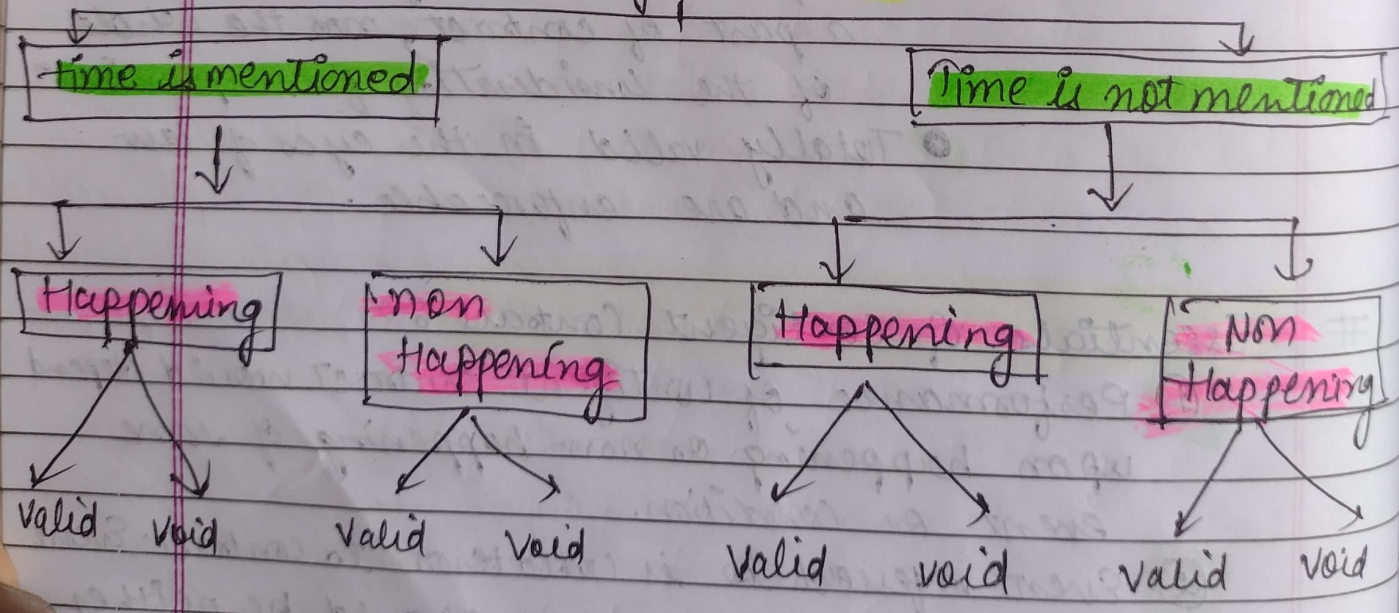 time is mentioned.
Time is not mentioned
Happening
non
Happening
Happening
Non
Happening
valid
void
valid
void
valid
void
valid
void